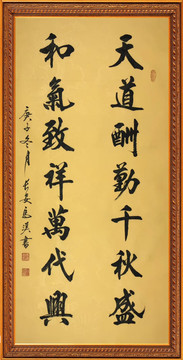 天道酬勤千秋盛
和氣致祥萬代興
庚子冬月
書